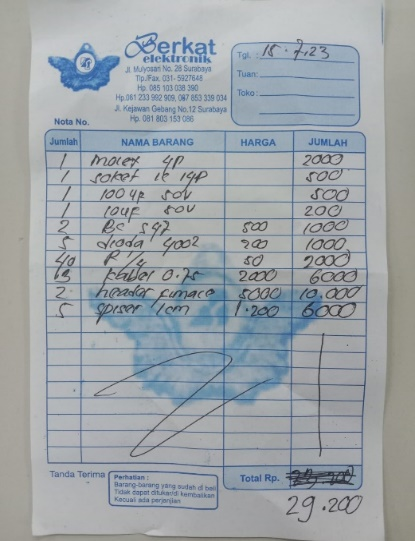 Berkat
elektronik
Jl. Mulyosari No. 28 Surabaya
Tlp./Fax. 031- 5927648
Hp. 085 103 038 390
Hp.081 233 992 909, 087 853 339 034
Jl. Kejawan Gebang No,12 Surabaya
Hp. 081 803 153 086
Tgl. : 18.7.23
Tuan:
Toko :
Nota No.
Jumlah NAMA BARANG HARGA JUMLAH
1 molex 4P 2000
1 soket ic 14P 500
1 100uf 50V 500
1 10uf 50V 200
2 BC 547 500 1000
5 dioda 4002 200 1000
40 R 1/4 50 2000
3 kabel 0.75 2000 6000
2 header 5000 10.000
5 spiser 1cm 1.200 6000
Tanda Terima
Perhatian :
Barang-barang yang sudah di beli
Tidak dapat ditukar/di kembalikan
Kecuali ada perjanjian
Total Rp.
29.200